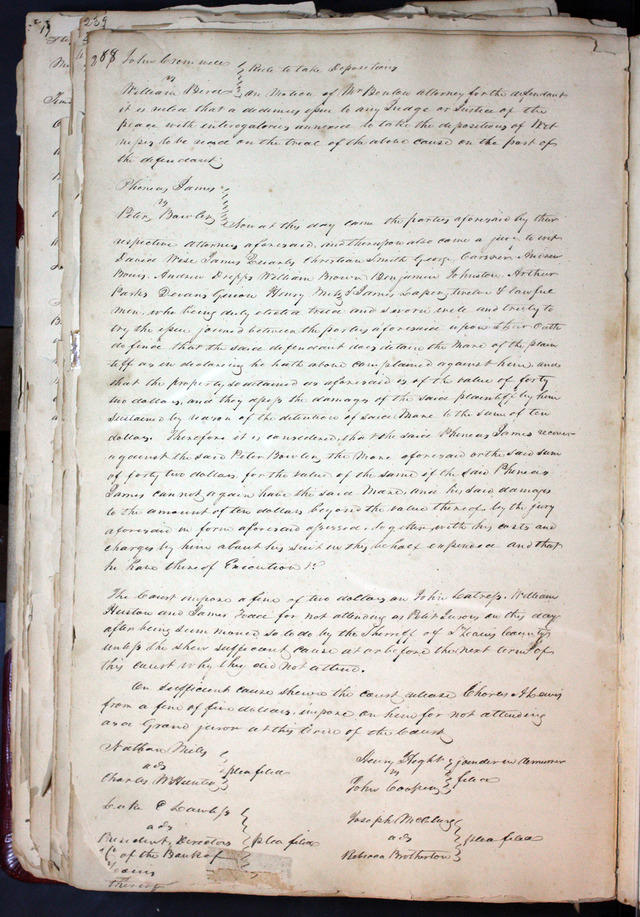 289
288 John Cromwell
vs } Rule to take Depositions
William Bird } on Motion of Mr Benton Attorney for the defendant
it is ruled that a dedimus issue to any Judge or Justice of the
peace with interogatories annexed to take the depositions of Wit
nesses to be read on the trial of the above cause on the part of
the defendant
Phineas James
vs
Peter Bowler } Now at this day came the parties aforesaid by their
respective Attornies aforesaid, and thereupon also came a jury to wit
David Wise James Quarles Christian Smith George Carver Andrew
Andrew Dripps William Brown Benjamin Johnston Arthur
Parks Henry & James twelve lawful
men, who being duly elected tried and sworn well and truly to
try the issue joined between the parties aforesaid upon their Oath
do find that the said defendant does detain the Mare of the plain
tiff as in declaring he hath above complained against him and
that the property so detained as aforesaid is of the value of forty
two dollars, and they assess the damages of the said plaintiff by him
sustained by reason of the detention of said Mare to the sum of ten
dollars. Therefore it is considered that the said Phineas James recover
against the said Peter Bowler the Mare aforesaid or the said sum
of forty two dollars for the value of the same if the said Phineas
James cannot again have the said Mare and his said damages
to the amount of ten dollars beyond the value thereof by the jury
aforesaid in form aforesaid assessed, together with his costs and
charges by him about his suit in this behalf expended and that
he have thereof Execution &c
The Court impose a fine of two dollars on John William
Huston and James for not attending as Petit Jurors on this day
after being summoned so to do by the Sherriff of St Louis County
unless the shew sufficient cause at or before the next term of
this court why they did not attend.
On sufficient cause shewn the court release Charles A Lewis
from a fine of five dollars, impose on him for not attending
as a Grand juror at this term of the Court
Nathan Miles
ads } plea filed
Charles W Hunter
Henry Hight } joinder in demurrer
vs } filed
John Cooper
Luke E Lawless
ads
President, Directors } plea filed
&c of the Bank of
Joseph McClurg
ads } plea filed
Rebecca Brotherton